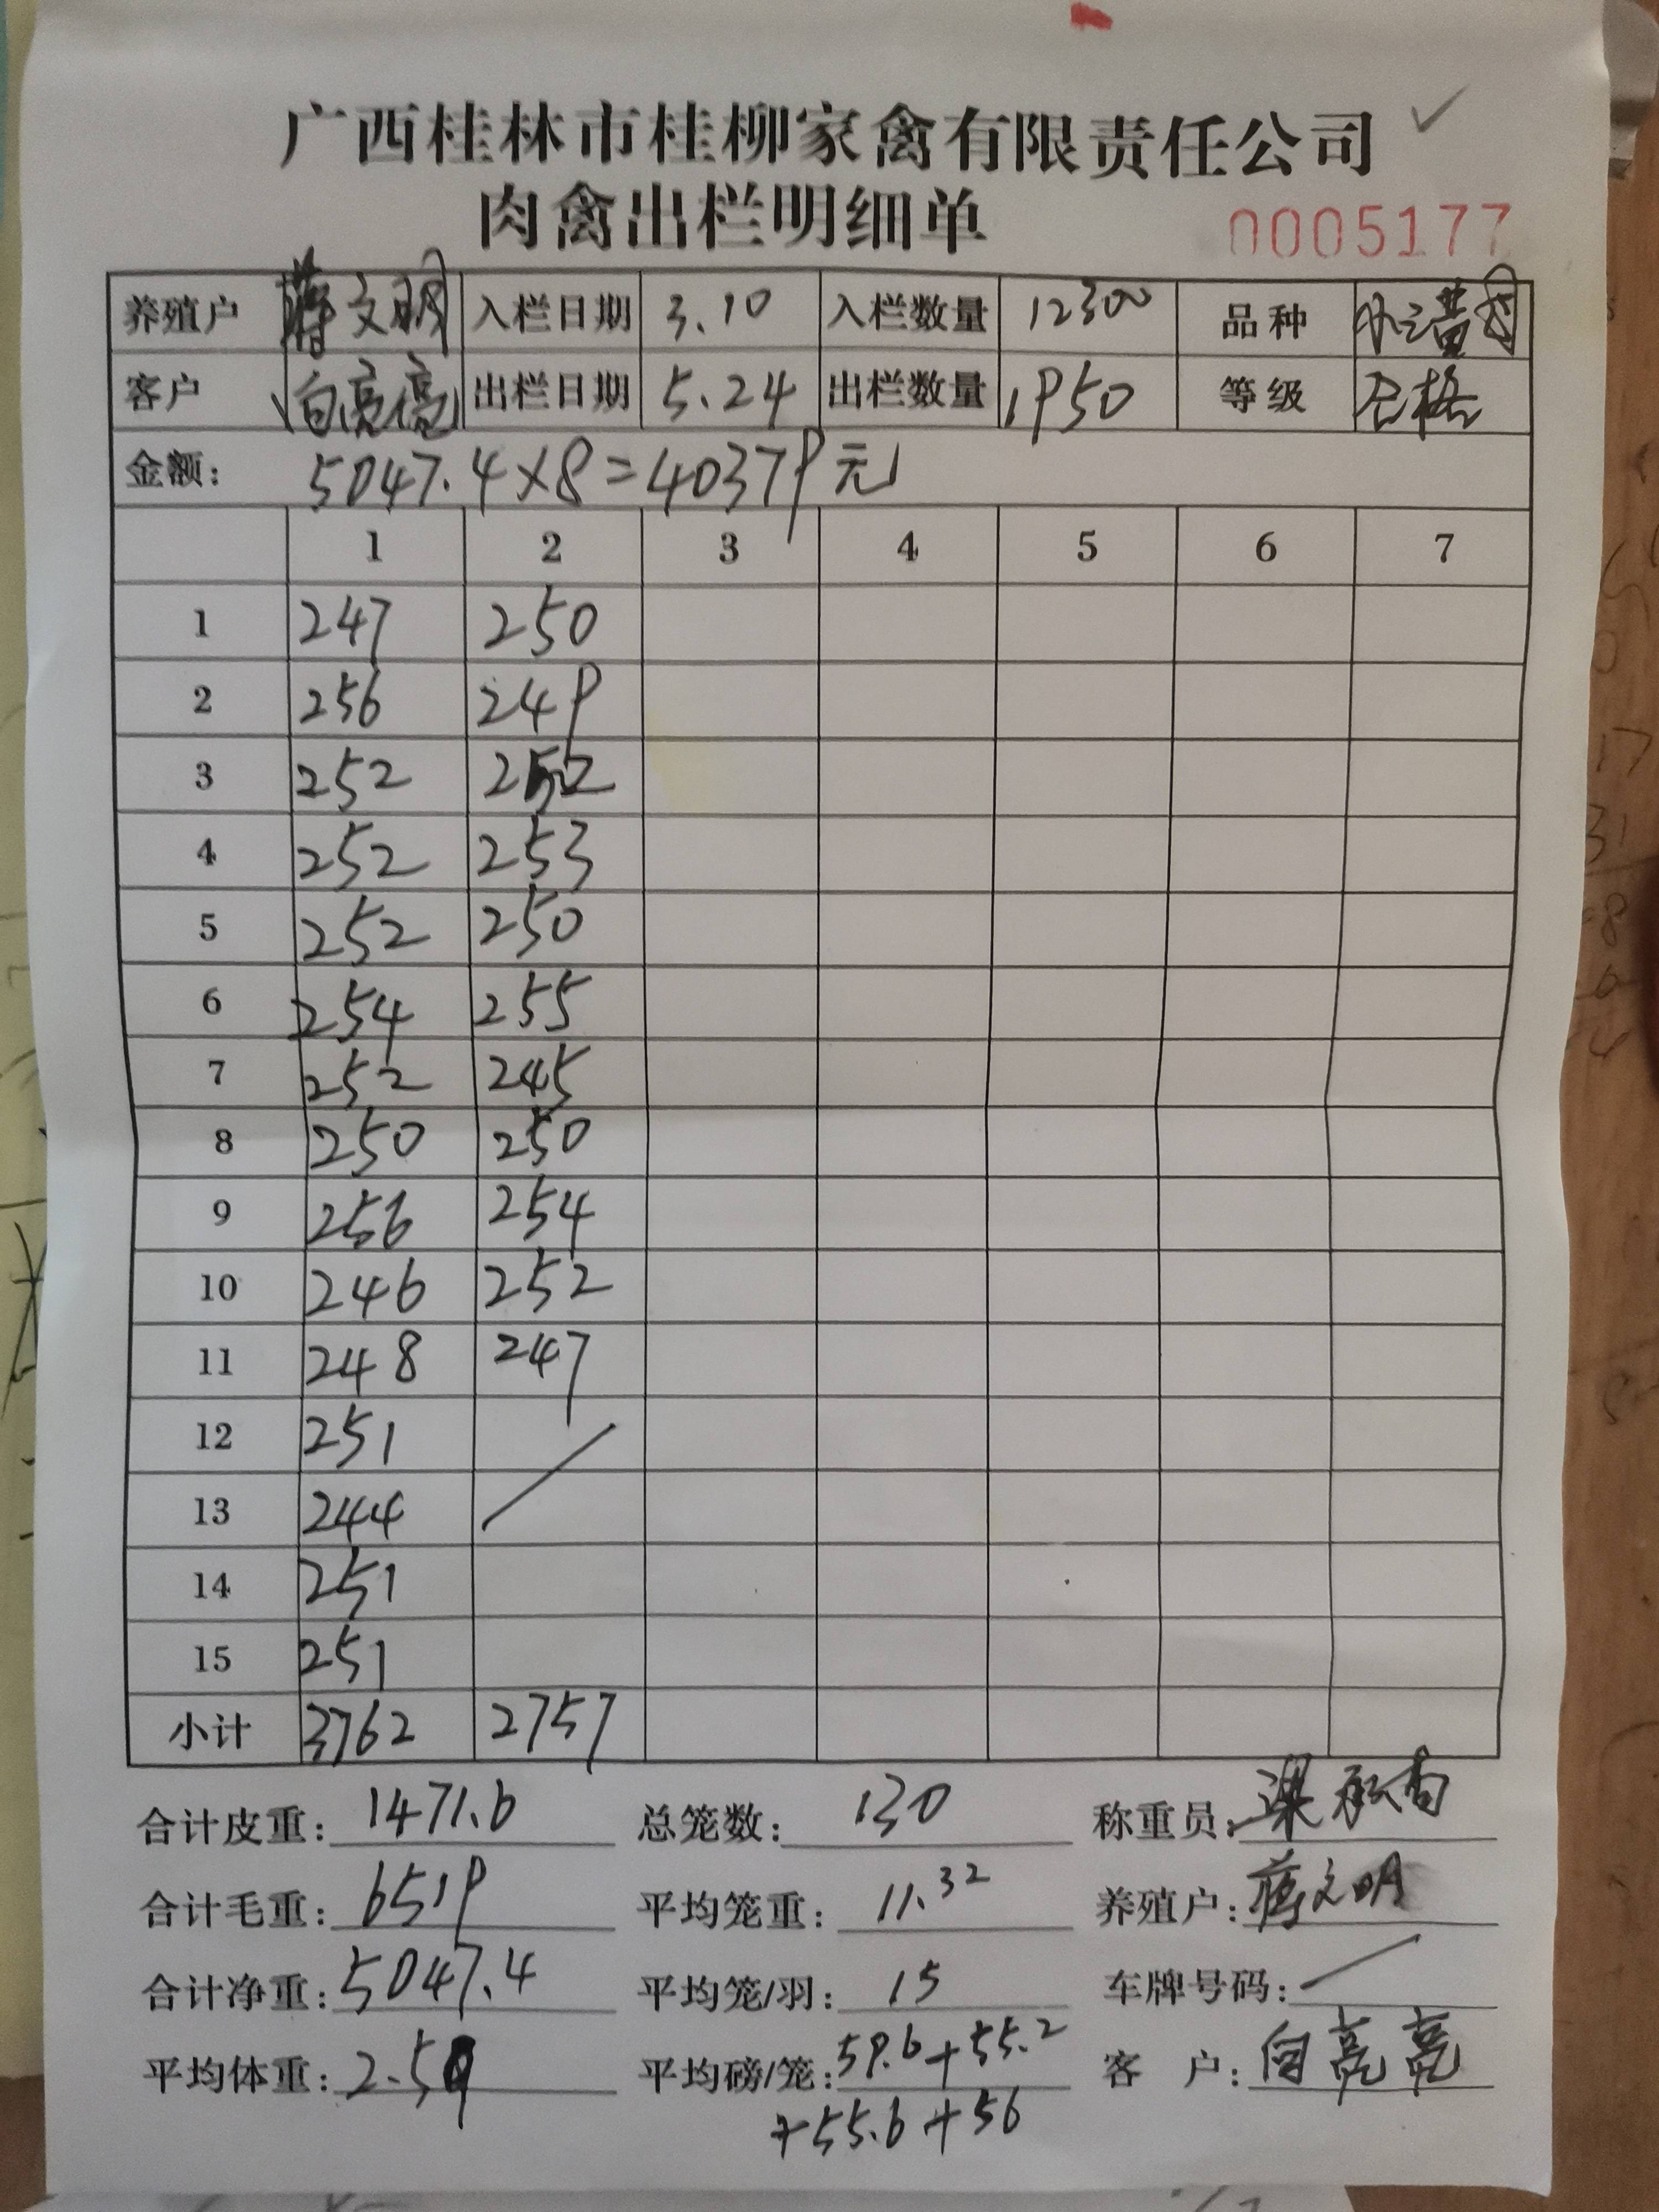 广西桂林市桂柳家禽有限责任公司
肉禽出栏明细单
0005177
养殖户 蒋文明 入栏日期 3.10 入栏数量 12300 品种
客户 向亮亮 出栏日期 5.24 出栏数量 1950 等级 合格
金额: 5047.4×8=40379元
1 2 3 4 5 6 7
1 247 250
2 256 249
3 252 252
4 252 253
5 252 250
6 254 255
7 252 245
8 250 250
9 256 254
10 246 252
11 248 247
12 251
13 244
14 251
15 251
小计 3762 2757
合计皮重: 1471.6 总笼数: 130 称重员: 梁
合计毛重: 6519 平均笼重: 11.32 养殖户: 蒋文明
合计净重: 5047.4 平均笼/羽: 15 车牌号码:
平均体重: 2.59 平均磅/笼: 59.6+55.2 客户: 向亮亮
+55.6+56